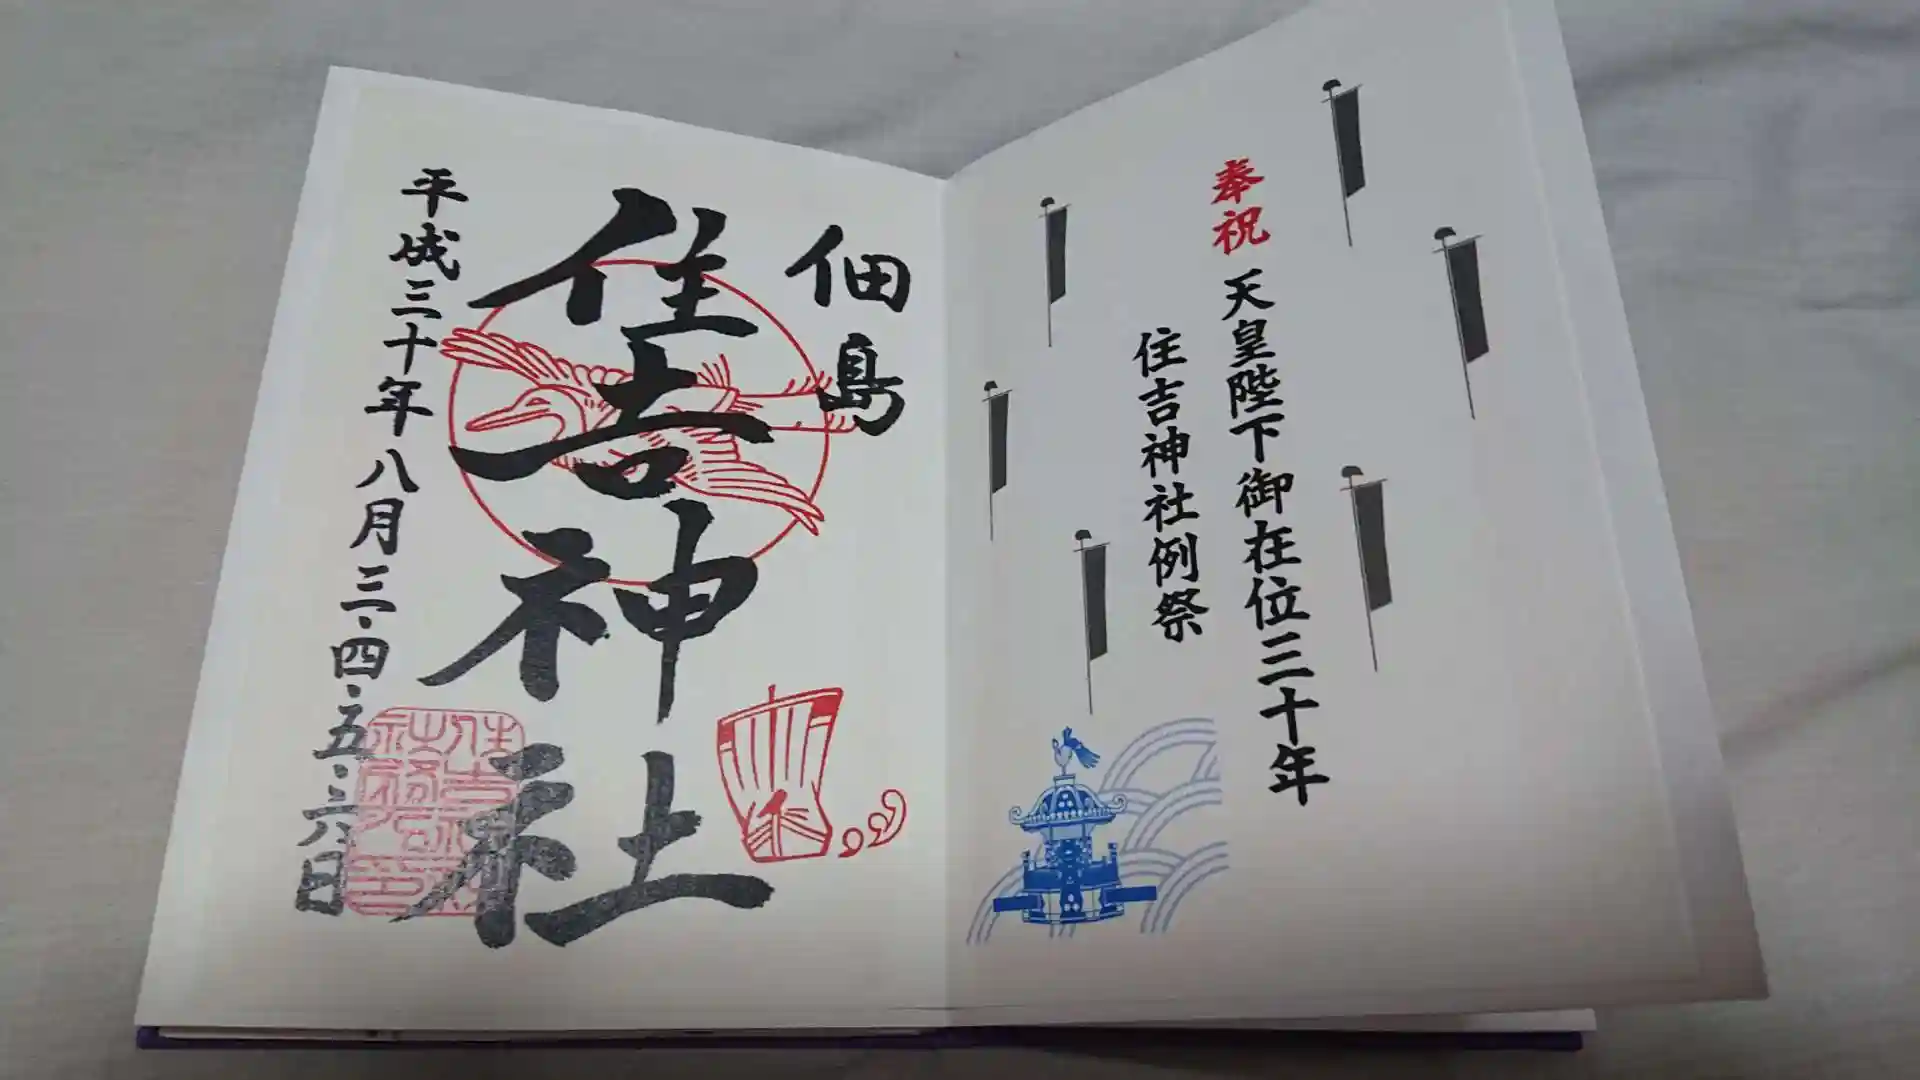 奉祝
天皇陛下御在位三十年
住吉神社例祭
佃島
住吉神社
平成三十年八月三・四・五・六日